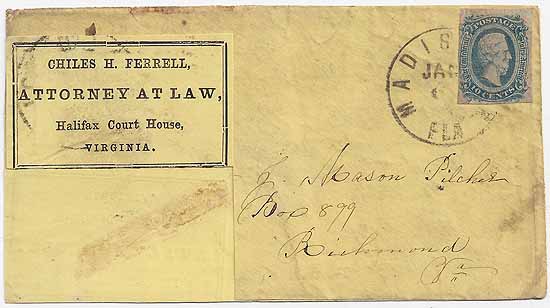 CHILES H. FERRELL,
ATTORNEY AT LAW,
Halifax Court House,
VIRGINIA.
MADIS
JAN
FLA
POSTAGE
J. Mason Pilcher
Box 899
Richmond
Va